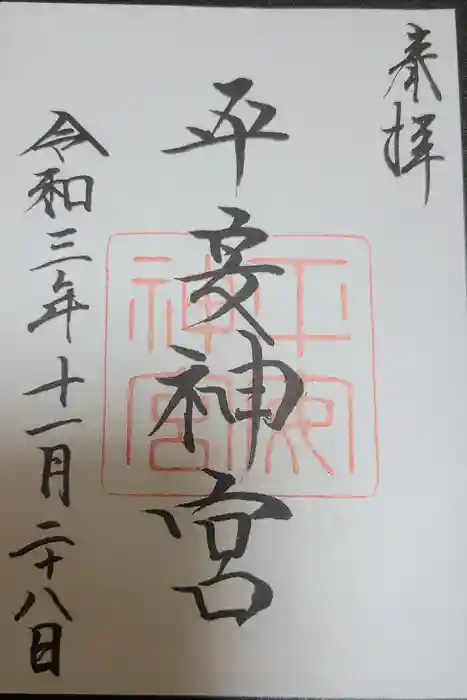 奉拝
平安神宮
平安神宮
令和三年十一月二十八日